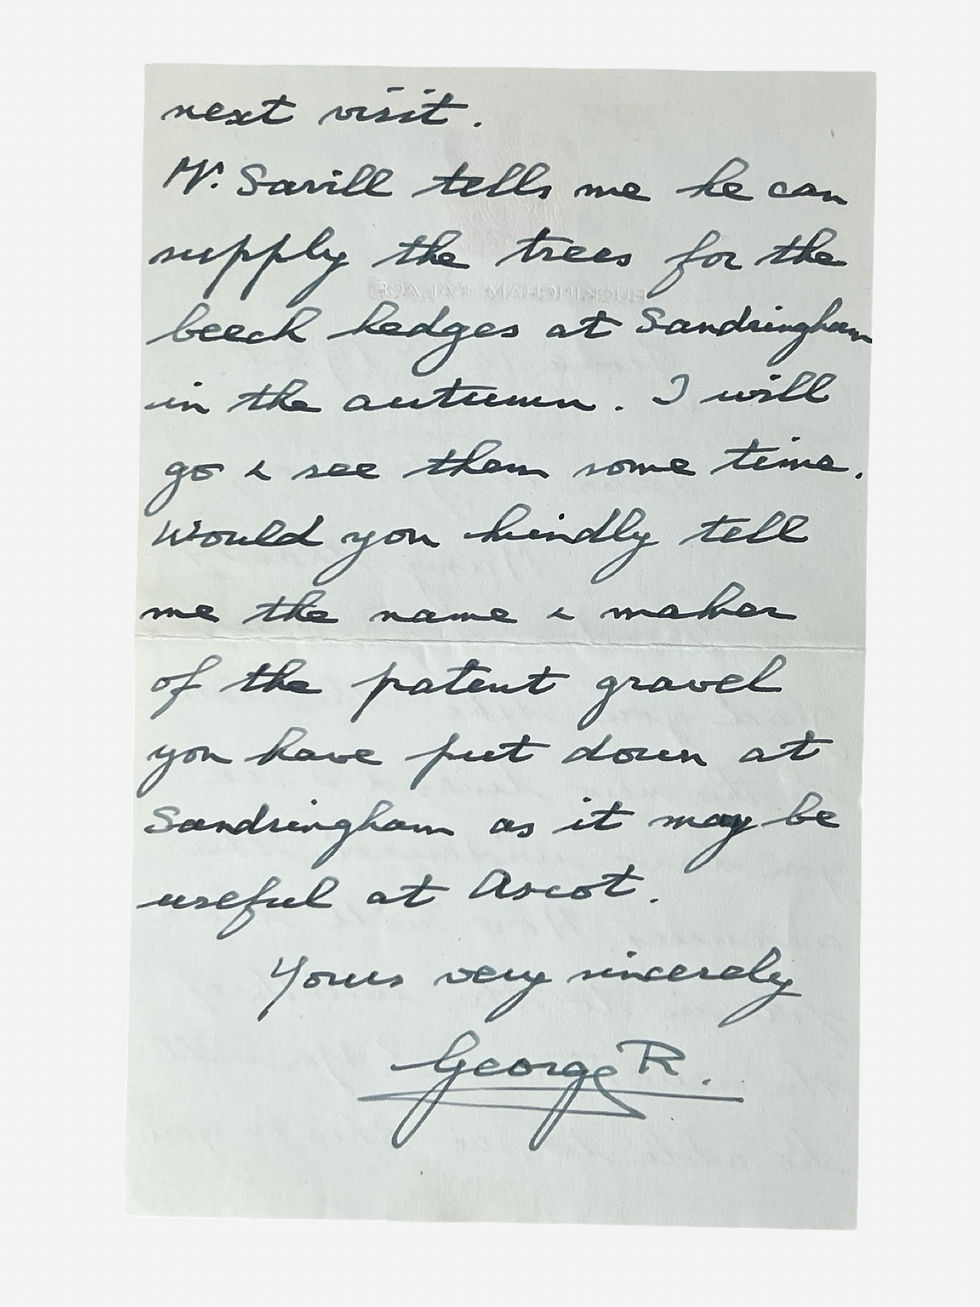 next visit.
Mr. Savill tells me he can
supply the trees for the
beech hedges at Sandringham
in the autumn. I will
go & see them some time.
Would you kindly tell
me the name & maker
of the patent gravel
you have put down at
Sandringham as it may be
useful at Ascot.
Yours very sincerely
George R.
BUCKINGHAM PALACE